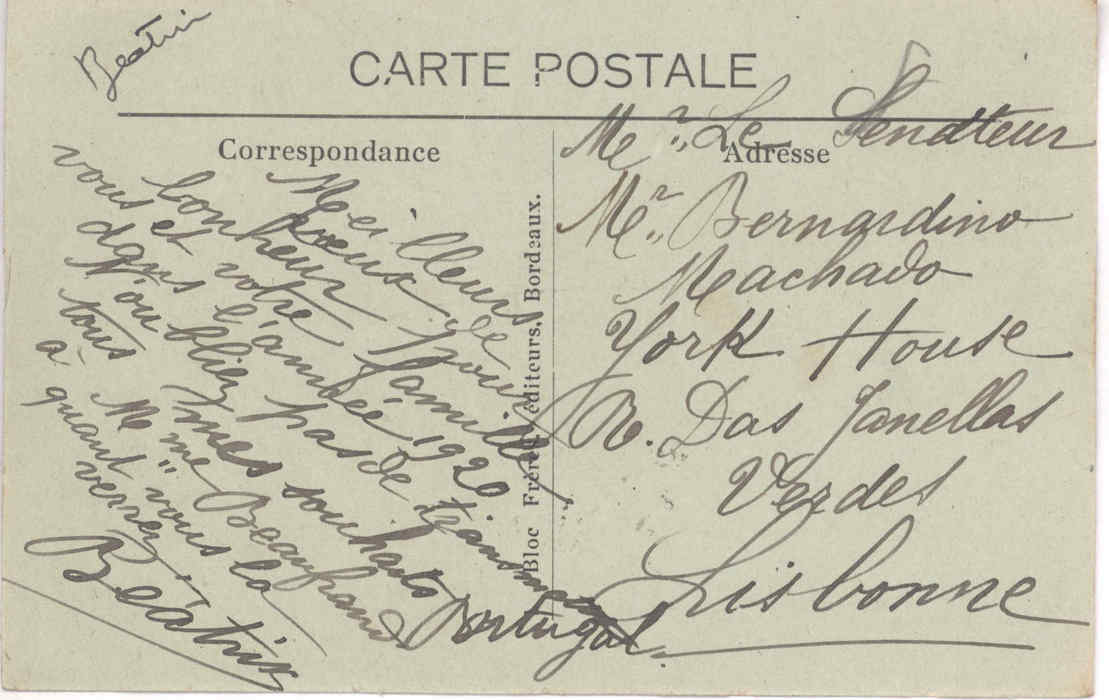 Beatriz
CARTE POSTALE
Correspondance
Adresse
Meilleurs
vœux de
bonheur pour
vous et votre famille
dans l'année 1920
N'oubliez pas de transmettre
tous mes souhaits
à Mme Beaufrand
quant vous la
verrez.
Beátriz
Bloc Frères, éditeurs, Bordeaux.
Mr. Le Senateur
Mr. Bernardino
Machado
York House
R. Das Janellas
Verdes
Lisbonne
Portugal.